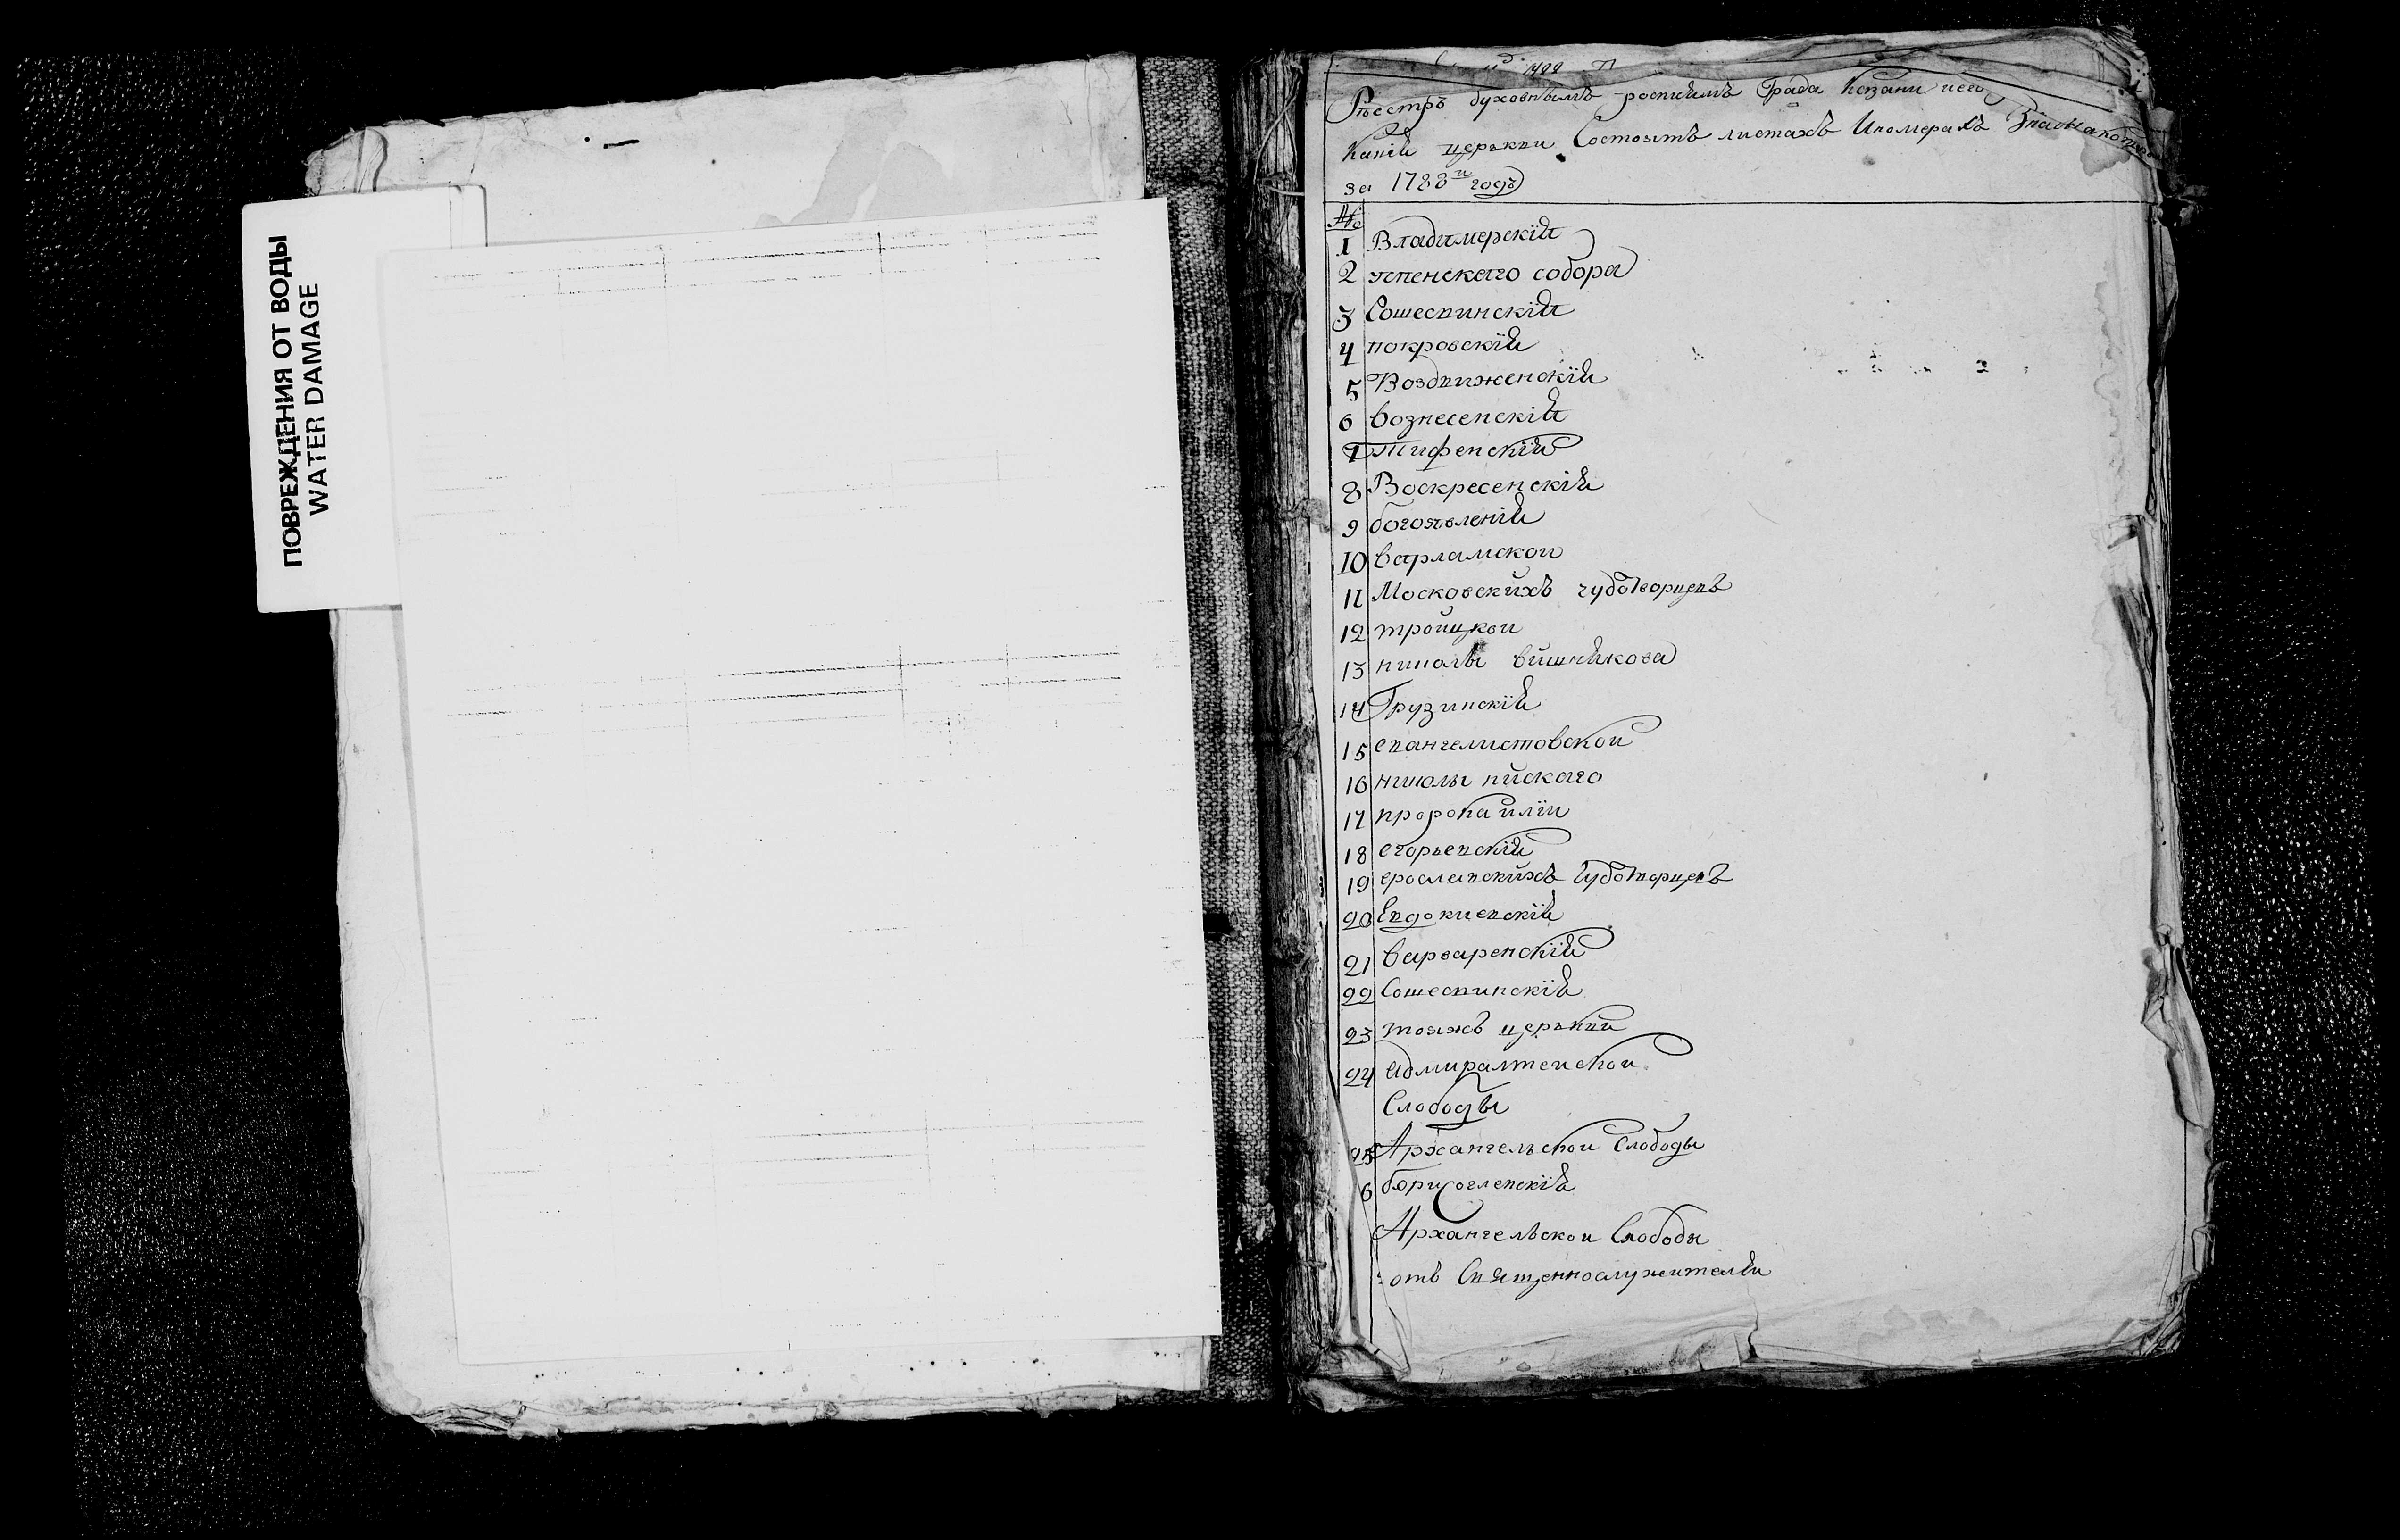 ПОВРЕЖДЕНИЯ ОТ ВОДЫ
WATER DAMAGE
Рѣестръ духовнымъ росписямъ Града Казани
Какiй церькви Состоятъ листахъ Iномерахъ
за 1788й годъ
№
1 Владимерскiй
2 успенскаго собора
3 Сошествинскiй
4 покровскiй
5 Воздвиженскiй
6 вознесенскiй
7 тифенскiй
8 Воскресенскiй
9 богоявленiй
10 варламскои
11 Московскихъ чудотворцевъ
12 троицкои
13 николы вишнякова
14 Грузинскiй
15 евангелистовскои
16 николы нискаго
17 пророка илiи
18 егорьевскiй
19 ерославскихъ чудотворцевъ
20 Евдокиевскiй
21 варваренскiй
22 Сошествинскiй
23 тояжъ церькви
24 адмиралтеискои
Слободы
25 Архангельскои Слободы
6 борисоглепскiй
Архангельскои Слободы
отъ Священнослужителѣи